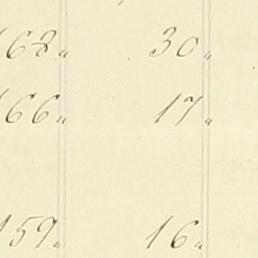 162 " 30 "
166 " 17 "
159 " 16 "